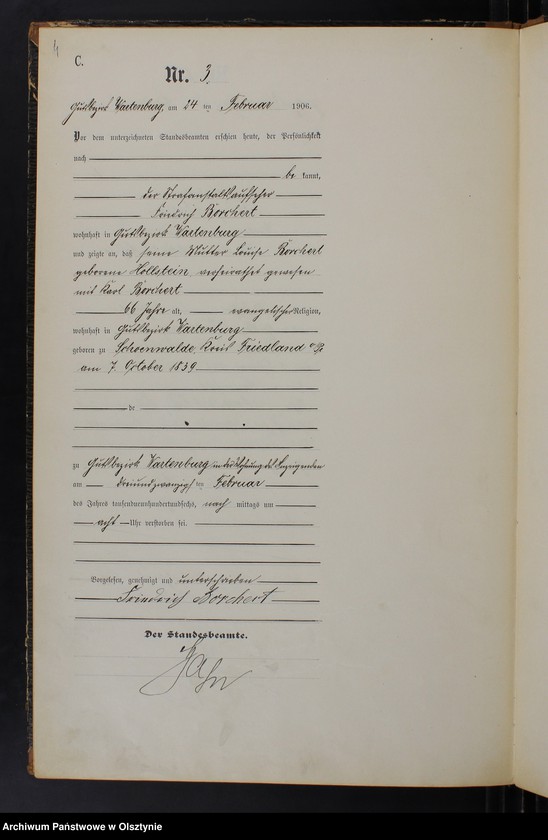 4
C.
Nr. 3.
Gutsbezirk Wartenburg, am 24 ten Februar 1906.
Vor dem unterzeichneten Standesbeamten erschien heute, der Persönlichkeit
nach
be kannt,
der Strafanstaltsaufseher
Friedrich Borchert
wohnhaft in Gutsbezirk Wartenburg
und zeigte an, daß seine Mutter Louise Borchert
geborene Hollstein, verheirathet gewesen
mit Karl Borchert
66 Jahre alt, evangelischer Religion,
wohnhaft in Gutsbezirk Wartenburg
geboren zu Schoenwalde, Kreis Friedland
am 7. October 1839
de
zu Gutsbezirk Wartenburg in der Wohnung des Anzeigenden
am dreiundzwanzigs ten Februar
des Jahres tausendneunhundertundsechs, nach mittags um
acht Uhr verstorben sei.
Vorgelesen, genehmigt und unterschrieben
Friedrich Borchert
Der Standesbeamte.
Archiwum Państwowe w Olsztynie